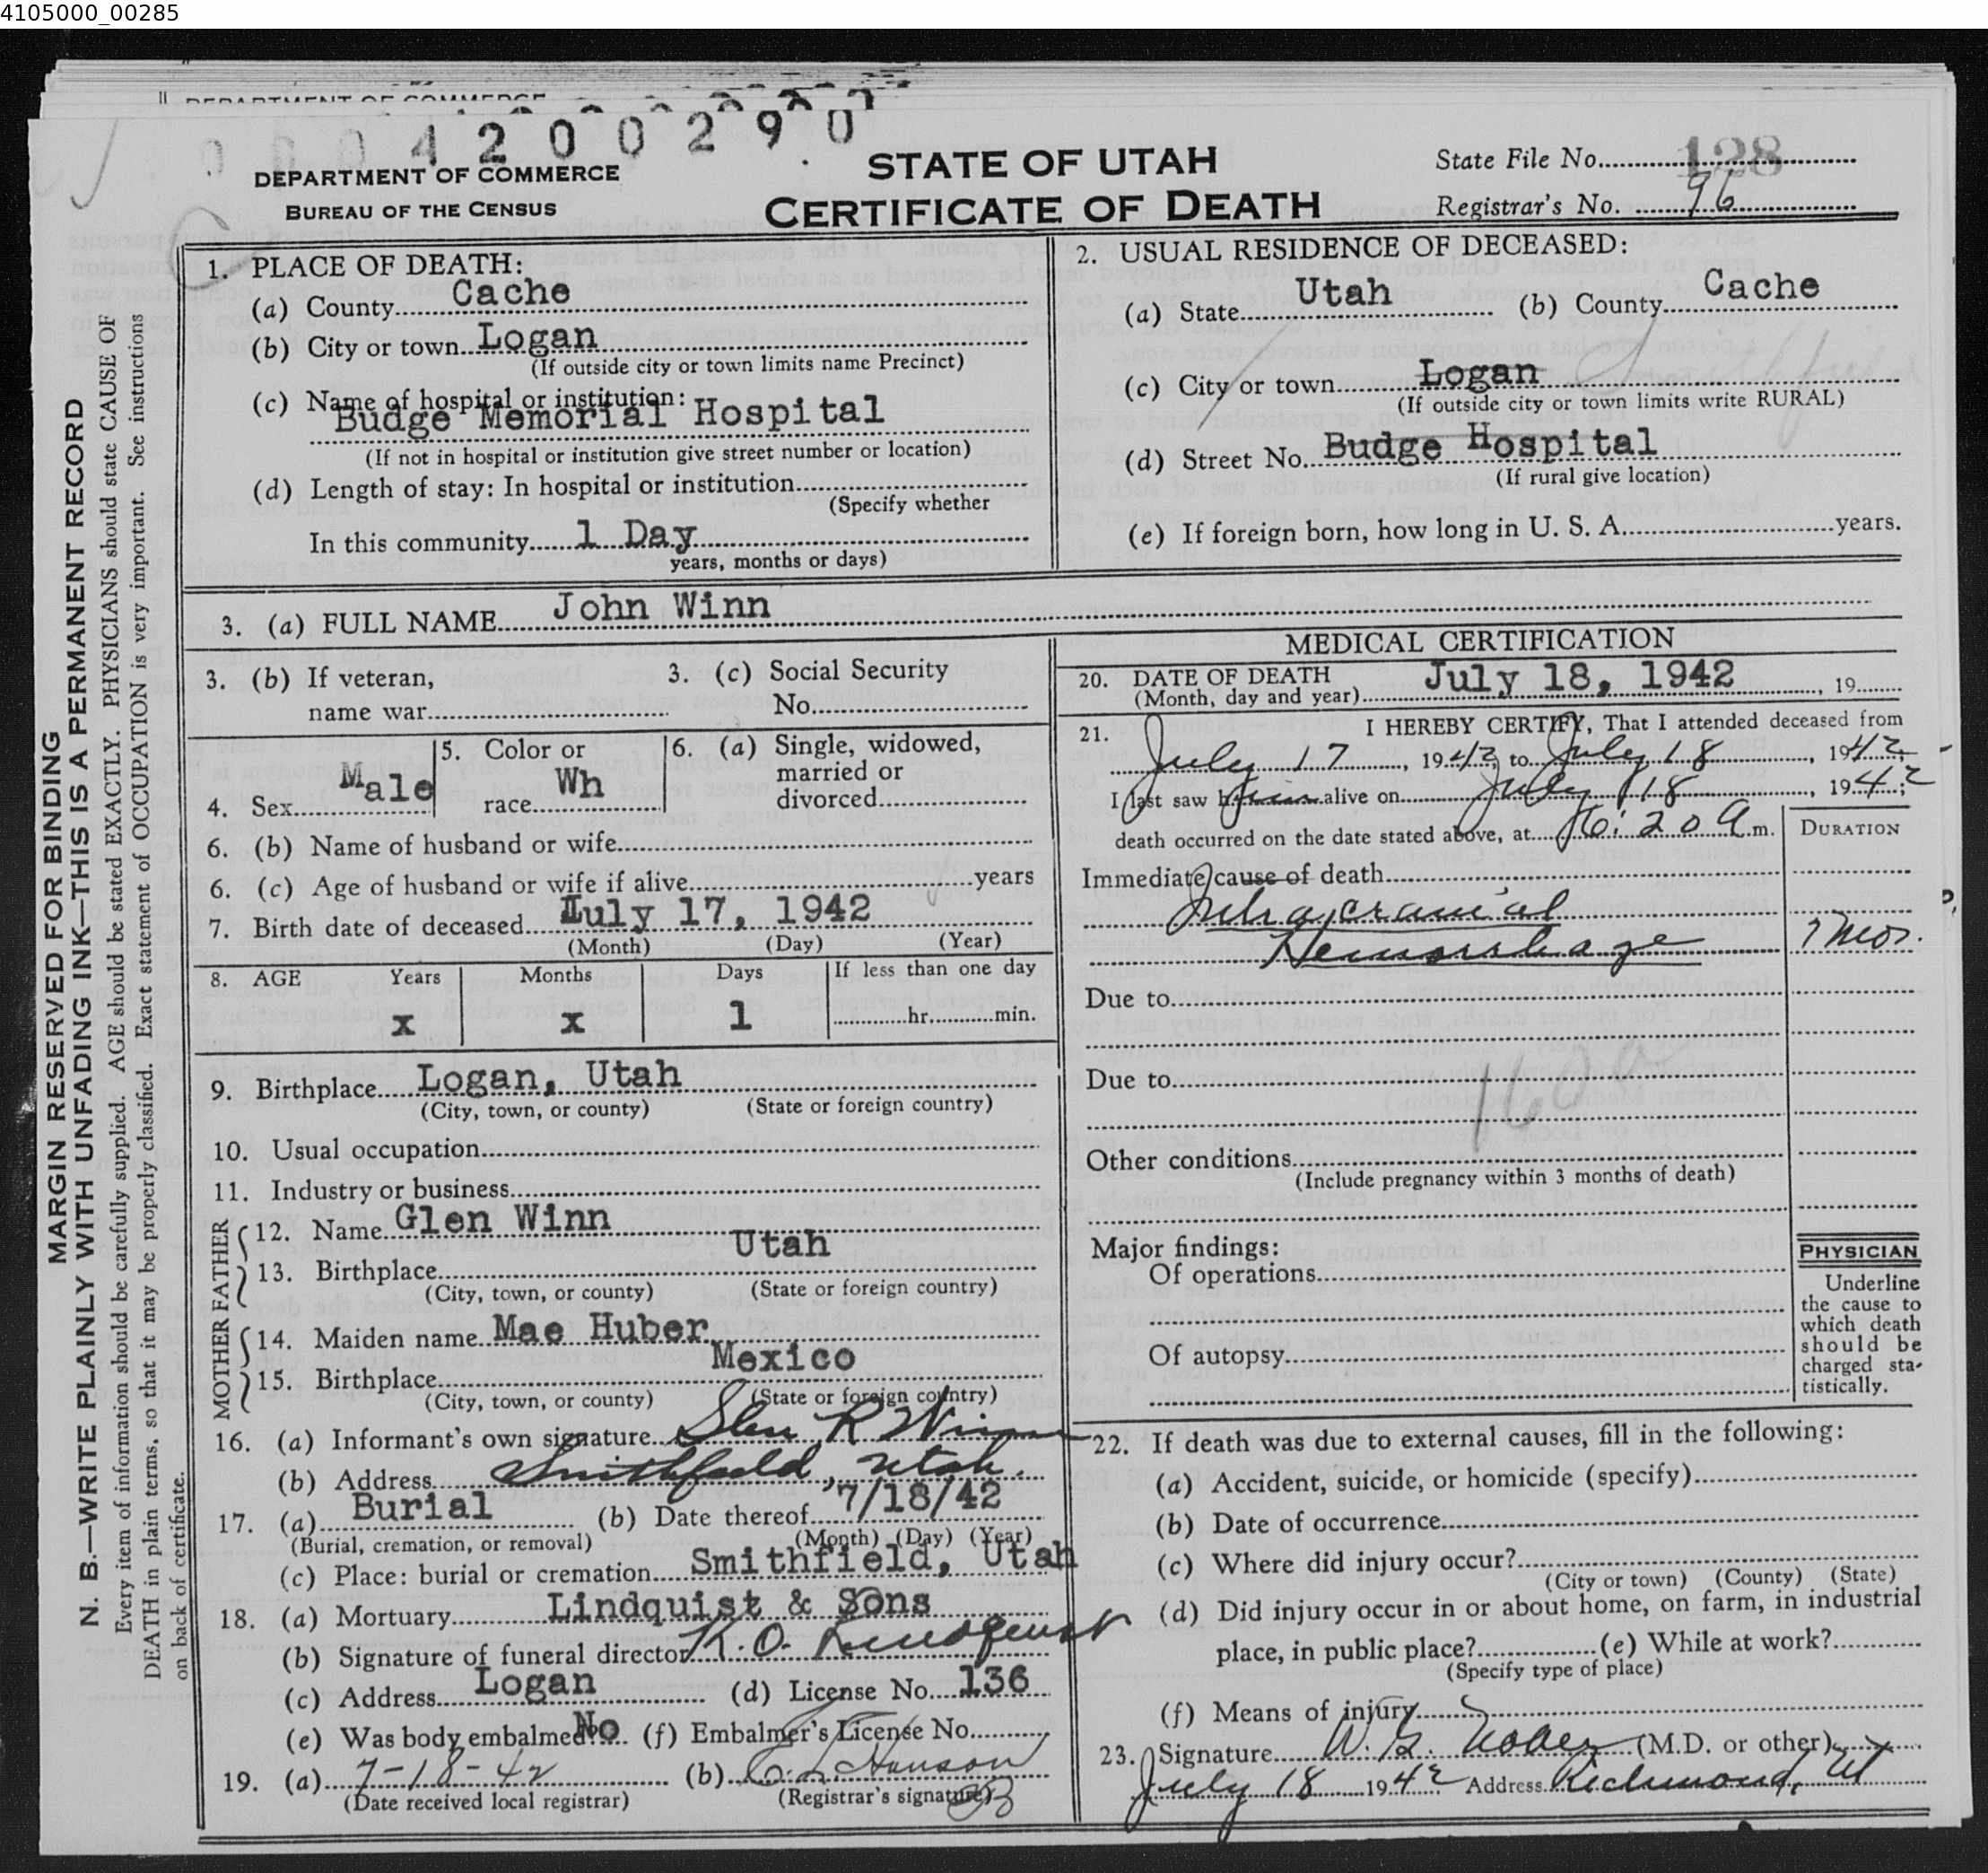 4105000_00285
DEPARTMENT OF COMMERCE
0004200290
DEPARTMENT OF COMMERCE
BUREAU OF THE CENSUS
STATE OF UTAH
CERTIFICATE OF DEATH
State File No. 128
Registrar's No. 96
1. PLACE OF DEATH:
(a) County Cache
(b) City or town Logan
(If outside city or town limits name Precinct)
(c) Name of hospital or institution:
Budge Memorial Hospital
(If not in hospital or institution give street number or location)
(d) Length of stay: In hospital or institution
(Specify whether
In this community 1 Day
years, months or days)
2. USUAL RESIDENCE OF DECEASED:
(a) State Utah (b) County Cache
(c) City or town Logan Smithfield
(If outside city or town limits write RURAL)
(d) Street No. Budge Hospital
(If rural give location)
(e) If foreign born, how long in U. S. A. years.
3. (a) FULL NAME John Winn
3. (b) If veteran,
name war
3. (c) Social Security
No.
4. Sex Male
5. Color or
race Wh
6. (a) Single, widowed,
married or
divorced
6. (b) Name of husband or wife
6. (c) Age of husband or wife if alive years
7. Birth date of deceased July 17, 1942
(Month) (Day) (Year)
8. AGE Years Months Days If less than one day
x x 1 hr. min.
9. Birthplace Logan, Utah
(City, town, or county) (State or foreign country)
10. Usual occupation
11. Industry or business
FATHER
12. Name Glen Winn
13. Birthplace Utah
(City, town, or county) (State or foreign country)
MOTHER
14. Maiden name Mae Huber
15. Birthplace Mexico
(City, town, or county) (State or foreign country)
16. (a) Informant's own signature Glen R Winn
(b) Address Smithfield, Utah.
17. (a) Burial (b) Date thereof 7/18/42
(Burial, cremation, or removal) (Month) (Day) (Year)
(c) Place: burial or cremation Smithfield, Utah
18. (a) Mortuary Lindquist & Sons
(b) Signature of funeral director K. O. Lindquist
(c) Address Logan (d) License No. 136
(e) Was body embalmed? No (f) Embalmer's License No.
19. (a) 7-18-42 (b) Hanson
(Date received local registrar) (Registrar's signature)
MEDICAL CERTIFICATION
20. DATE OF DEATH
(Month, day and year) July 18, 1942, 19
21. I HEREBY CERTIFY, That I attended deceased from
July 17, 1942, to July 18, 1942;
I last saw him alive on July 18, 1942;
death occurred on the date stated above, at 6:20 a m.
DURATION
Immediate cause of death
Intracranial
Hemorrhage
Due to
Due to
160
Other conditions
(Include pregnancy within 3 months of death)
Major findings:
Of operations
Of autopsy
PHYSICIAN
Underline
the cause to
which death
should be
charged sta-
tistically.
22. If death was due to external causes, fill in the following:
(a) Accident, suicide, or homicide (specify)
(b) Date of occurrence
(c) Where did injury occur?
(City or town) (County) (State)
(d) Did injury occur in or about home, on farm, in industrial
place, in public place? (e) While at work?
(Specify type of place)
(f) Means of injury
23. Signature W. G. (M.D. or other)
July 18 1942 Address Richmond, Ut
MARGIN RESERVED FOR BINDING
N. B.—WRITE PLAINLY WITH UNFADING INK—THIS IS A PERMANENT RECORD
Every item of information should be carefully supplied. AGE should be stated EXACTLY. PHYSICIANS should state CAUSE OF
DEATH in plain terms, so that it may be properly classified. Exact statement of OCCUPATION is very important. See instructions
on back of certificate.